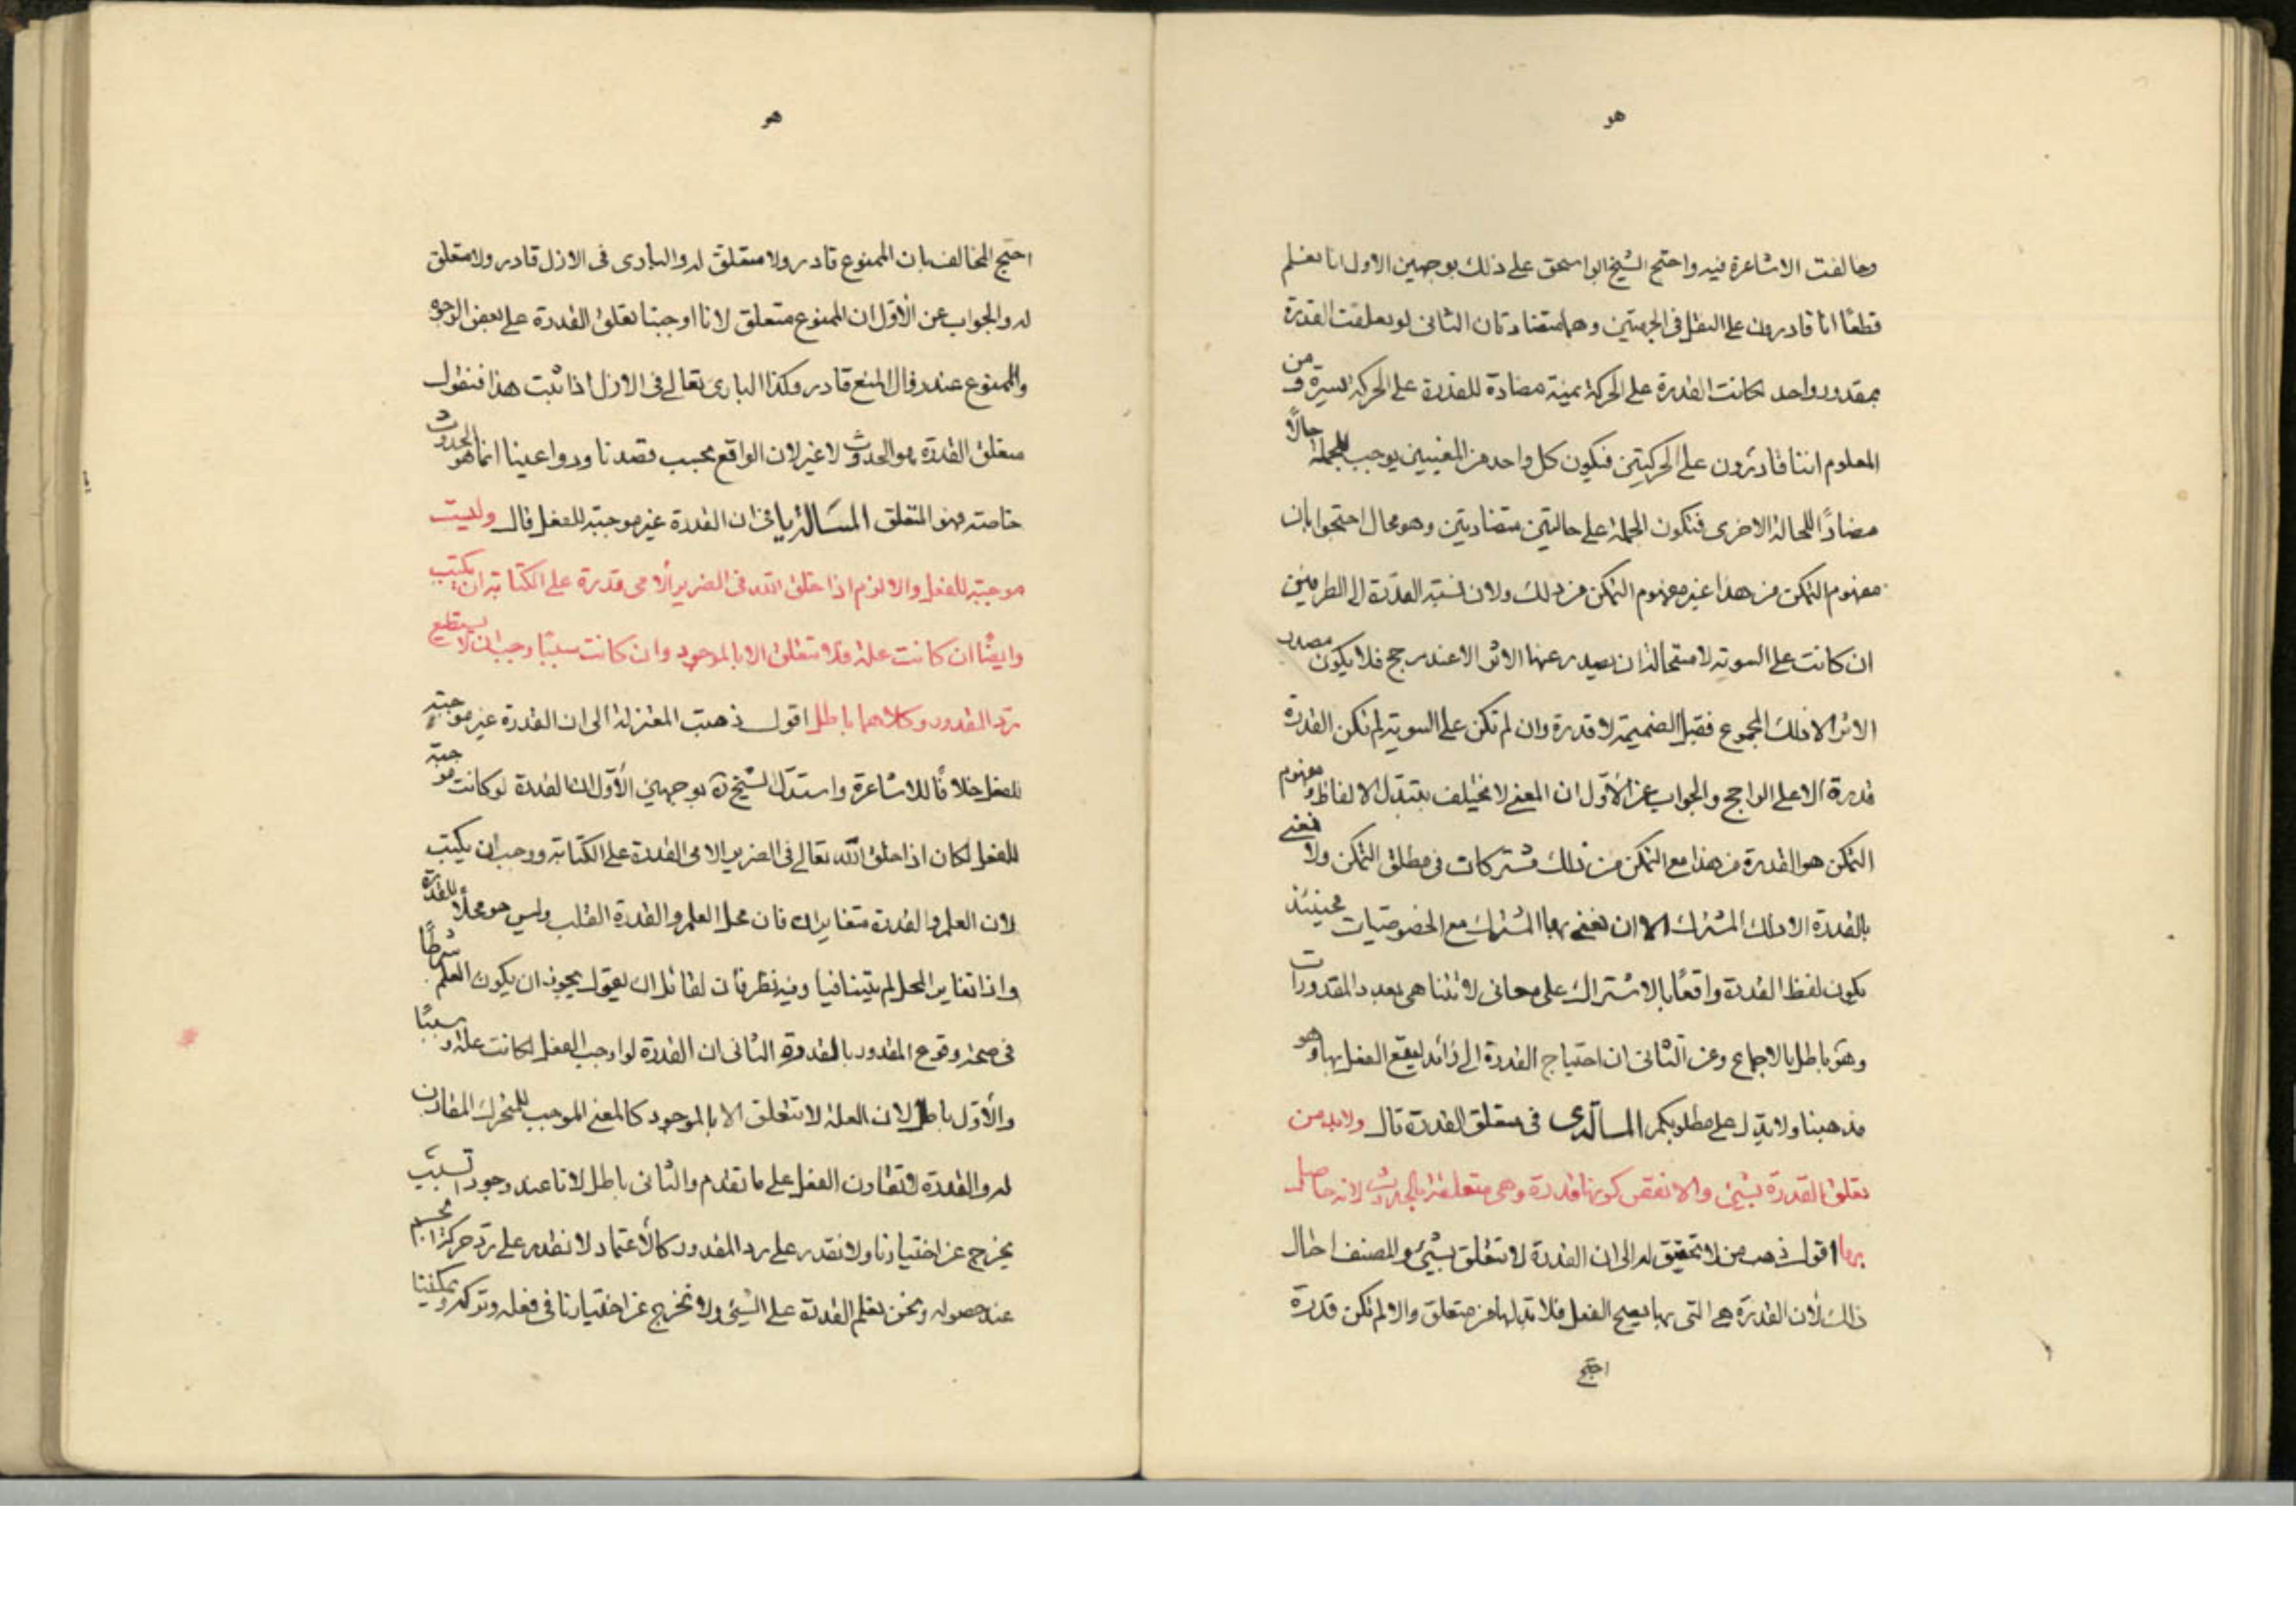 هو
وخالفت الاشاعرة فيه واحتج الشيخ ابو اسحق على ذلك بوجهين الاول انا نعلم
قطعًا انا قادرون على النقل فى الجهتين وهما متضادتان الثانى لو تعلقت القدرة
بمقدور واحد لكانت القدرة على الحركة يمنية مضادة للقدرة على الحركة يسرة و من
المعلوم اننا قادرون على الحركتين فيكون كل واحد من المعنيين يوجب للجملة حالًا
مضادًا للحالة الاخرى فتكون الجملة على حالتين متضادتين وهو محال احتجوا بان
مفهوم التمكن من هذا غير مفهوم التمكن من ذلك ولان نسبة القدرة الى الطرفين
ان كانت على السوية لاستحالة ان يصدر عنها الاثر الا عند مرجح فلا يكون مصدر
الاثر الا ذلك المجموع فقبل الضميمة لا قدرة وان لم تكن على السوية لم تكن القدرة
قدرة الا على الراجح والجواب عن الاوّل ان المعنى لا يختلف بتبدّل الالفاظ و مفهوم
التمكن هو القدرة من هذا مع التمكن من ذلك مشتركات فى مطلق التمكن ولا نعنى
بالقدرة الا ذلك المشترك الا ان نعنى بها المشترك مع الخصوصيّات فحينئذ
يكون لفظ القدرة واقعًا بالاشتراك على معانى لا تتناهى بعدد المقدورات
وهو باطل بالاجماع وعن الثانى ان احتياج القدرة الى زائد ليقع الفعل بها وهو
مذهبنا ولا يدل على مطلوبكم المسالة ى فى متعلق القدرة قال ولابد من
تعلق القدرة بشيئ والا نقض كونها قدرة وهى متعلقة بالحدوث لانه حاصل
بها اقول ذهب من لا تحقيق له الى ان القدرة لا تتعلق بشيئ والمصنف احال
ذلك لان القدرة هى التى بها يصح الفعل فلا بد لها من متعلق والا لم تكن قدرة
احتج
هو
احتج المخالف بان الممنوع قادر ولا متعلق له والبارى فى الازل قادر ولا متعلق
له والجواب عن الأوّل ان الممنوع متعلق لانا اوجبنا تعلق القدرة على بعض الوجوه
والممنوع عند زوال المنع قادر وكذا البارى تعالى فى الازل اذا ثبت هذا فنقول
متعلق القدرة هو الحدوث لا غير لان الواقع بحسب قصدنا ودواعينا انما هو الحدوث
خاصته فهو المتعلق المسالة يا فى ان القدرة غير موجبة للفعل قال وليست
موجبة للفعل والا لزم اذا خلق الله فى الضرير الامى قدرة على الكتابة ان يكتب
وايضًا ان كانت علة فلا تتعلق الا بالموجود وان كانت سببًا وجب ان لا يستطيع
رد المقدور وكلاهما باطل اقول ذهبت المعتزلة الى ان القدرة غير موجبة
للفعل خلافًا للاشاعرة واستدل الشيخ ره بوجهين الأوّل ان القدرة لو كانت موجبة
للفعل لكان اذا خلق الله تعالى فى الضرير الامى القدرة على الكتابة ووجب ان يكتب
لان العلم والقدرة متغايران فان محل العلم والقدرة القلب وليس هو محلًا للقدرة
واذا تغاير المحل لم يتنافيا وفيه نظر فان لقائل ان يقول يجوز ان يكون العلم شرطًا
فى صحة وقوع المقدور بالقدرة الثانى ان القدرة لو اوجبت الفعل لكانت علة و سببًا
والأوّل باطل لان العلة لا تتعلق الا بالموجود كالمعنى الموجب للتحرك المقارن
له والقدرة لا تقارن الفعل على ما تقدم والثانى باطل لانا عند وجود السبب
يخرج عن اختيارنا ولا نقدر على رد المقدور كالأعتماد لا نقدر على رد حركة الجسم
عند حصوله ونحن نعلم القدرة على الشيئ ولا نخرج عن اختيارنا فى فعله وتركه و يمكننا